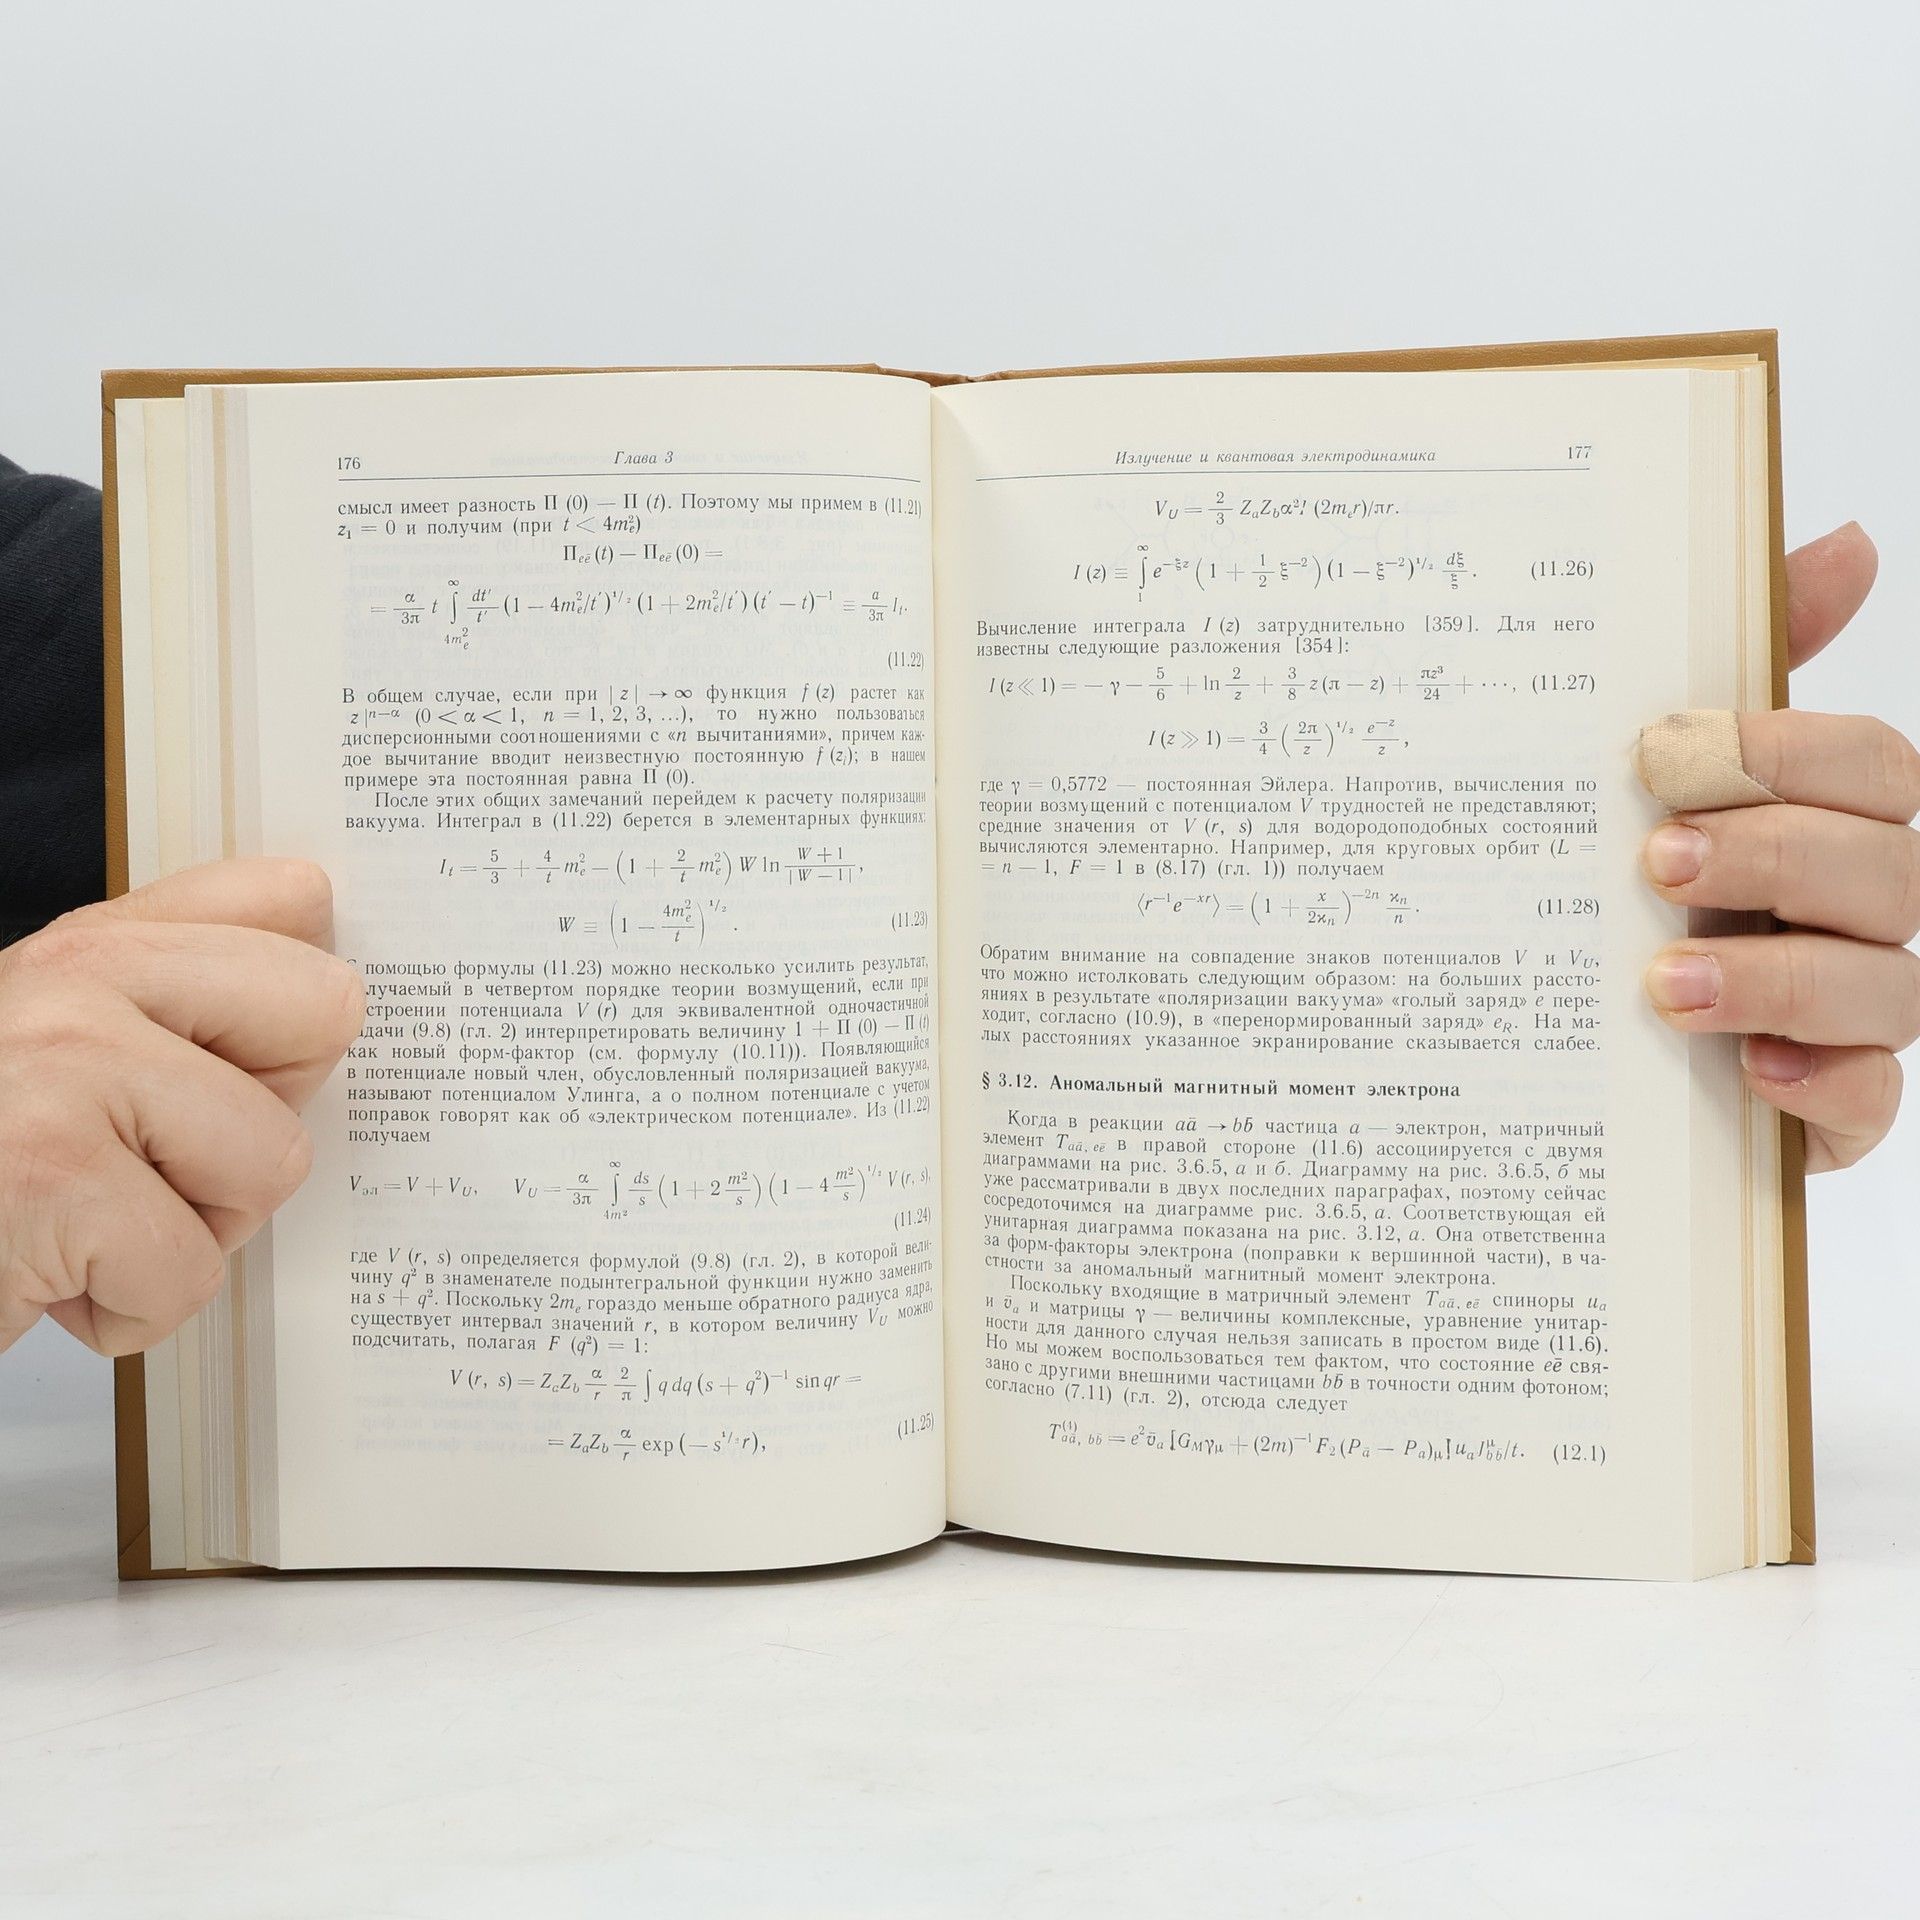 176 Глава 3
смысл имеет разность Π (0) — Π (t). Поэтому мы примем в (11.21)
z₁ = 0 и получим (при t < 4mₑ²)
Π_{eē} (t) — Π_{eē} (0) =
= α/3π t ∫_{4mₑ²}^{∞} dt′/t′ (1 — 4mₑ²/t′)^{1/2} (1 + 2mₑ²/t′) (t′ — t)⁻¹ ≡ a/3π Iₜ.
(11.22)
В общем случае, если при | z | → ∞ функция f (z) растет как
z |^{n—α} (0 < α < 1, n = 1, 2, 3, ...), то нужно пользоваться
дисперсионными соотношениями с «n вычитаниями», причем каж-
дое вычитание вводит неизвестную постоянную f (zᵢ); в нашем
примере эта постоянная равна Π (0).
После этих общих замечаний перейдем к расчету поляризации
вакуума. Интеграл в (11.22) берется в элементарных функциях:
Iₜ = 5/3 + 4/t mₑ² — (1 + 2/t mₑ²) W ln (W + 1)/(| W — 1 |),
W ≡ (1 — 4mₑ²/t)^{1/2}. (11.23)
помощью формулы (11.23) можно несколько усилить результат,
лучаемый в четвертом порядке теории возмущений, если при
строении потенциала V (r) для эквивалентной одночастичной
дачи (9.8) (гл. 2) интерпретировать величину 1 + Π (0) — Π (t)
как новый форм-фактор (см. формулу (10.11)). Появляющийся
в потенциале новый член, обусловленный поляризацией вакуума,
называют потенциалом Улинга, а о полном потенциале с учетом
поправок говорят как об «электрическом потенциале». Из (11.22)
получаем
V_{эл} = V + V_U, V_U = α/3π ∫_{4m²}^{∞} ds/s (1 + 2 m²/s) (1 — 4 m²/s)^{1/2} V (r, s),
(11.24)
где V (r, s) определяется формулой (9.8) (гл. 2), в которой вели-
чину q² в знаменателе подынтегральной функции нужно заменить
на s + q². Поскольку 2mₑ гораздо меньше обратного радиуса ядра,
существует интервал значений r, в котором величину V_U можно
подсчитать, полагая F (q²) = 1:
V (r, s) = Z_cZ_b α/r 2/π ∫ q dq (s + q²)⁻¹ sin qr =
= Z_aZ_b α/r exp (— s^{1/2}r), (11.25)
Излучение и квантовая электродинамика 177
V_U = 2/3 Z_aZ_bα²I (2mₑr)/πr.
I (z) ≡ ∫_{1}^{∞} e^{—ξz} (1 + 1/2 ξ⁻²) (1 — ξ⁻²)^{1/2} dξ/ξ. (11.26)
Вычисление интеграла I (z) затруднительно [359]. Для него
известны следующие разложения [354]:
I (z ≪ 1) = — γ — 5/6 + ln 2/z + 3/8 z (π — z) + πz³/24 + ···, (11.27)
I (z ≫ 1) = 3/4 (2π/z)^{1/2} e^{—z}/z,
где γ = 0,5772 — постоянная Эйлера. Напротив, вычисления по
теории возмущений с потенциалом V трудностей не представляют;
средние значения от V (r, s) для водородоподобных состояний
вычисляются элементарно. Например, для круговых орбит (L =
= n — 1, F = 1 в (8.17) (гл. 1)) получаем
⟨r⁻¹e^{—xr}⟩ = (1 + x/2ϰₙ)^{—2n} ϰₙ/n. (11.28)
Обратим внимание на совпадение знаков потенциалов V и V_U,
что можно истолковать следующим образом: на больших рассто-
яниях в результате «поляризации вакуума» «голый заряд» e пере-
ходит, согласно (10.9), в «перенормированный заряд» e_R. На ма-
лых расстояниях указанное экранирование сказывается слабее.
§ 3.12. Аномальный магнитный момент электрона
Когда в реакции aā → bb̄ частица a — электрон, матричный
элемент T_{aā, eē} в правой стороне (11.6) ассоциируется с двумя
диаграммами на рис. 3.6.5, а и б. Диаграмму на рис. 3.6.5, б мы
уже рассматривали в двух последних параграфах, поэтому сейчас
сосредоточимся на диаграмме рис. 3.6.5, а. Соответствующая ей
унитарная диаграмма показана на рис. 3.12, а. Она ответственна
за форм-факторы электрона (поправки к вершинной части), в ча-
стности за аномальный магнитный момент электрона.
Поскольку входящие в матричный элемент T_{aā, eē} спиноры u_a
и v̄_a и матрицы γ — величины комплексные, уравнение унитар-
ности для данного случая нельзя записать в простом виде (11.6).
Но мы можем воспользоваться тем фактом, что состояние eē свя-
зано с другими внешними частицами bb̄ в точности одним фотоном;
согласно (7.11) (гл. 2), отсюда следует
T^{(4)}_{aā, bb̄} = e²v̄_a [G_Mγ_μ + (2m)⁻¹ F₂ (P_ā — P_a)_μ] u_a J^μ_{bb̄}/t. (12.1)